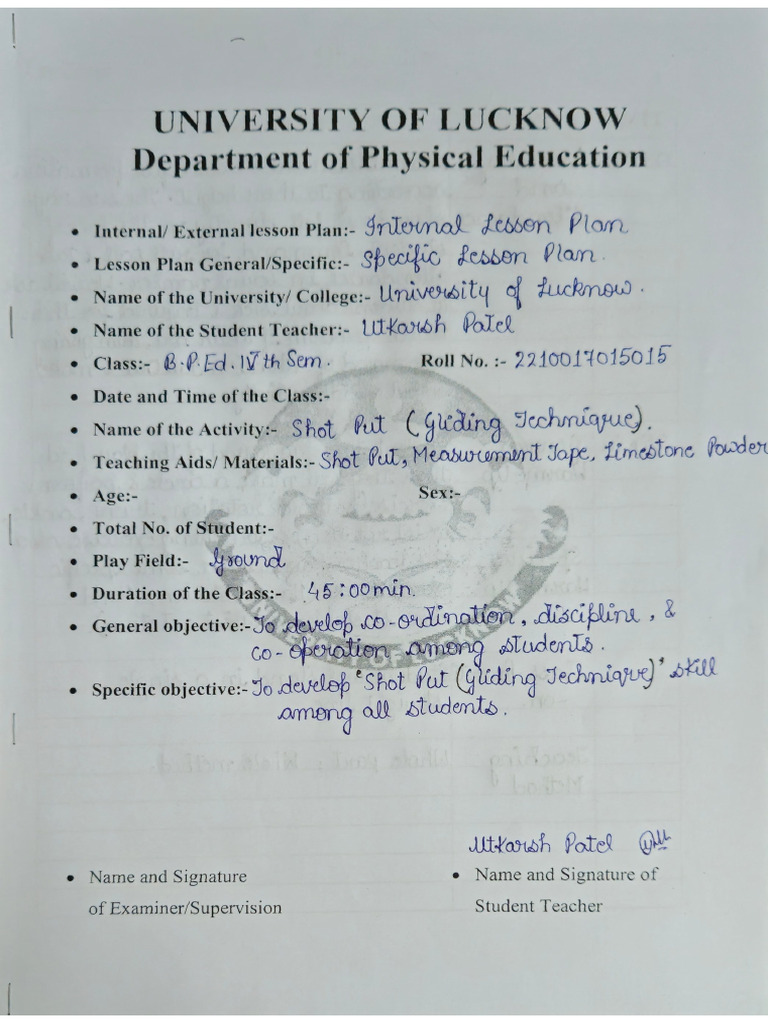 UNIVERSITY OF LUCKNOW
Department of Physical Education
• Internal/ External lesson Plan:- Internal Lesson Plan
• Lesson Plan General/Specific:- Specific Lesson Plan.
• Name of the University/ College:- University of Lucknow.
• Name of the Student Teacher:- Utkarsh Patel
• Class:- B.P.Ed. IVth Sem. Roll No. :- 2210017015015
• Date and Time of the Class:-
• Name of the Activity:- Shot Put (Gliding Technique).
• Teaching Aids/ Materials:- Shot Put, Measurement Tape, Limestone Powder
• Age:- Sex:-
• Total No. of Student:-
• Play Field:- Ground
• Duration of the Class:- 45:00min.
• General objective:- To develop co-ordination, discipline, &
co-operation among students.
• Specific objective:- To develop "Shot Put (Gliding Technique)" skill
among all students.
Utkarsh Patel
• Name and Signature
of Examiner/Supervision
• Name and Signature of
Student Teacher
UNIVERSITY OF LUCKNOW